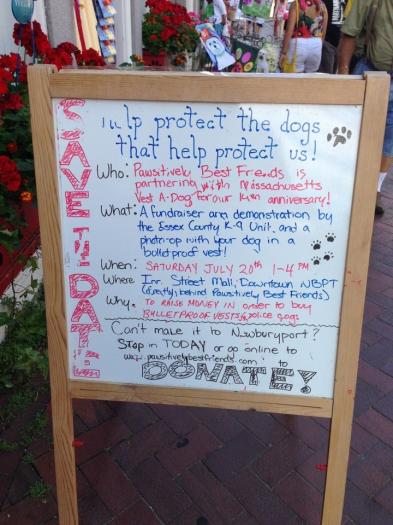 SAVE THE DATE
Help protect the dogs
that help protect us!
Who: Pawsitively Best Friends is
partnering with Massachusetts
Vest A-Dog for our 14th anniversary!
What: A fundraiser and demonstration by
the Essex County K-9 Unit, and a
photo-op with your dog in a
bulletproof vest!
When: SATURDAY JULY 20th 1-4 PM
Where Inn Street Mall, Downtown NBPT
(directly behind Pawsitively Best Friends)
Why: TO RAISE MONEY IN order to buy
BULLETPROOF VESTS for police dogs
Can't make it to Newburyport?
Stop in TODAY or go online to
www.pawsitivelybestfriends.com to
DONATE!